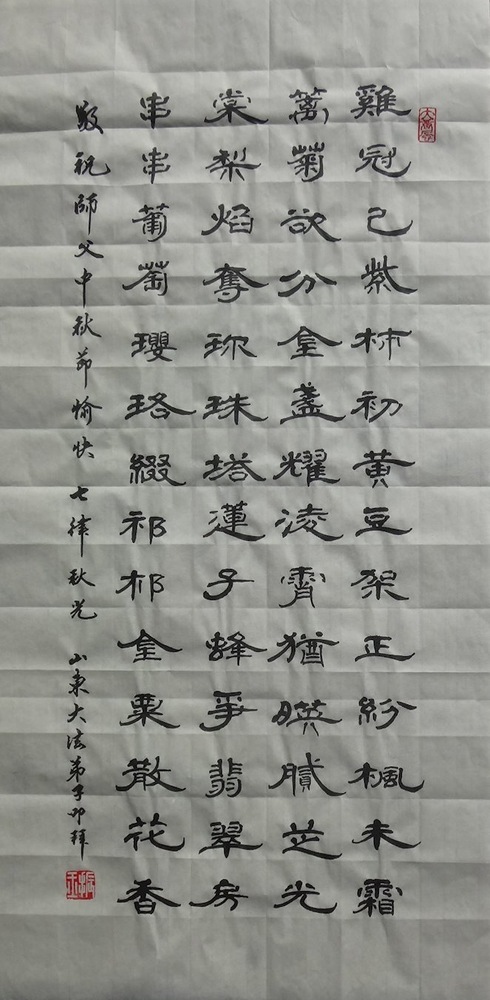 雞冠已紫柿初黄豆架正紛楓未霜
篱菊欲分金盞耀凌霄猶暎膩芷光
棠梨焰奪珎珠塔蓮子蜂爭翡翠房
串串葡萄瓔珞綴祁祁金粟散花香
敬祝師父中秋節愉快 七律秋光 山東大法弟子叩拜